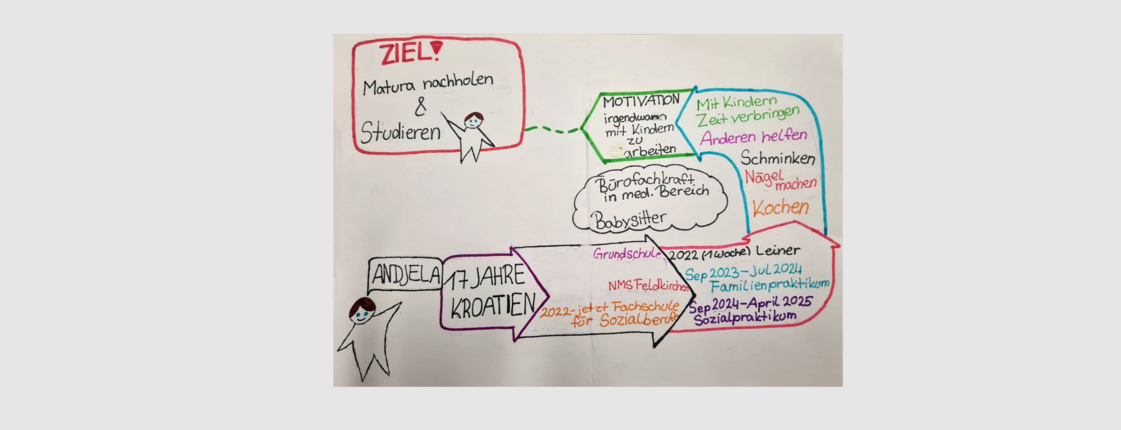 ZIEL!
Matura nachholen
&
Studieren
MOTIVATION
irgendwann
mit Kindern
zu
arbeiten
Mit Kindern
Zeit verbringen
Anderen helfen
Schminken
Nägel
machen
Kochen
Bürofachkraft
in med. Bereich
Babysitter
ANDJELA
17 JAHRE
KROATIEN
Grundschule
NMS Feldkirchen
2022-jetzt Fachschule
für Sozialberufe
2022 (1 Woche) Leiner
Sep 2023-Jul 2024
Familienpraktikum
Sep 2024-April 2025
Sozialpraktikum